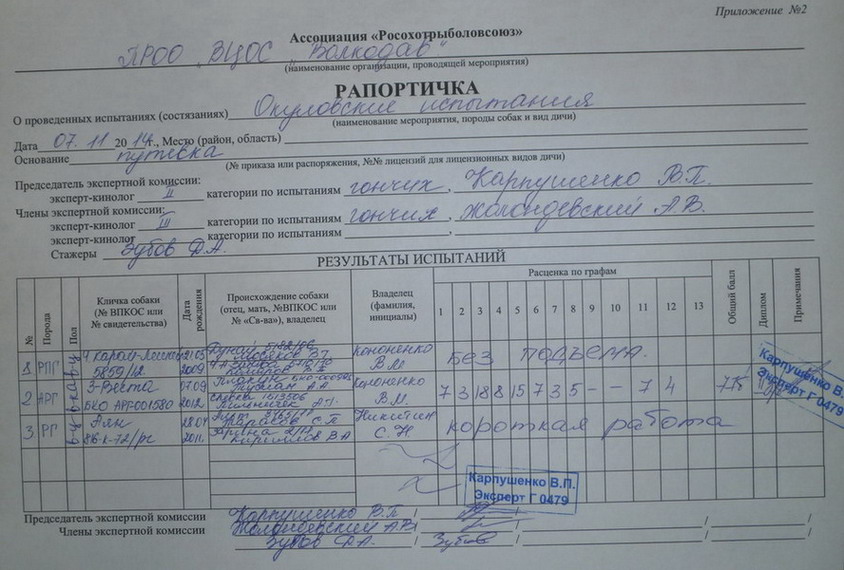 Приложение №2
Ассоциация «Росохотрыболовсоюз»
ПРОО „ВЦОС „Волкодав"
(наименование организации, проводящей мероприятия)
РАПОРТИЧКА
О проведенных испытаниях (состязаниях) Окуловские испытания
(наименование мероприятия, породы собак и вид дичи)
Дата 07.11 2014г., Место (район, область)
Основание путевка
(№ приказа или распоряжения, №№ лицензий для лицензионных видов дичи)
Председатель экспертной комиссии:
эксперт-кинолог II категории по испытаниям гончих, Карпушенко В.П.
Члены экспертной комиссии:
эксперт-кинолог III категории по испытаниям гончих, Жолондевский А.В.
эксперт-кинолог категории по испытаниям
Стажеры Зубов Д.А.
РЕЗУЛЬТАТЫ ИСПЫТАНИЙ
№ Порода Пол Кличка собаки (№ ВПКОС или № свидетельства) Дата рождения Происхождение собаки (отец, мать, №ВПКОС или № «Св-ва»), владелец Владелец (фамилия, инициалы) Расценка по графам Общий балл Диплом Примечания
1 2 3 4 5 6 7 8 9 10 11 12 13
1. РПГ 5859/12 2009 Кононенко В.М. Без подъема.
2 АРГ 3-Веста БКО АРГ001580 07.09 2012 Кононенко В.М. 7 31 8 8 15 7 3 5 - - 7 4
3. РГ Аян 28.04 2011. Тарасов С.П. Кириллов В.А Никитин С.Н. короткая работа
Карпушенко В.
Эксперт Г 0479
Карпушенко В.П.
Эксперт Г 0479
Председатель экспертной комиссии Карпушенко В.П /
Члены экспертной комиссии Жолондевский А.В /
Зубов Д.А. / Зубов /